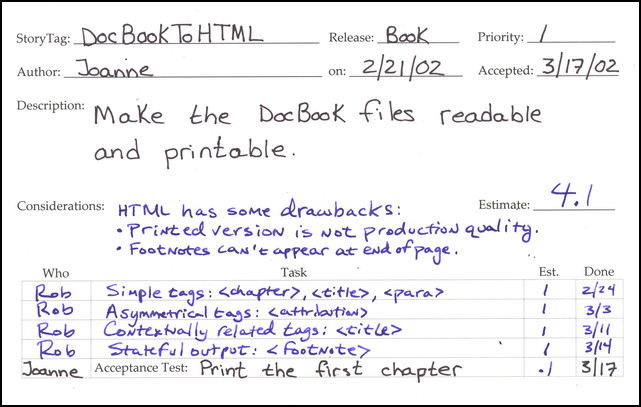 StoryTag: DocBookToHTML Release: Book Priority: 1
Author: Joanne on: 2/21/02 Accepted: 3/17/02
Description: Make the DocBook files readable
and printable.
Considerations: HTML has some drawbacks: Estimate: 4.1
• Printed version is not production quality.
• Footnotes can't appear at end of page.
Who Task Est. Done
Rob Simple tags: <chapter>, <title>, <para> 1 2/24
Rob Asymmetrical tags: <attribution> 1 3/3
Rob Contextually related tags: <title> 1 3/11
Rob Stateful output: <footnote> 1 3/14
Joanne Acceptance Test: Print the first chapter .1 3/17